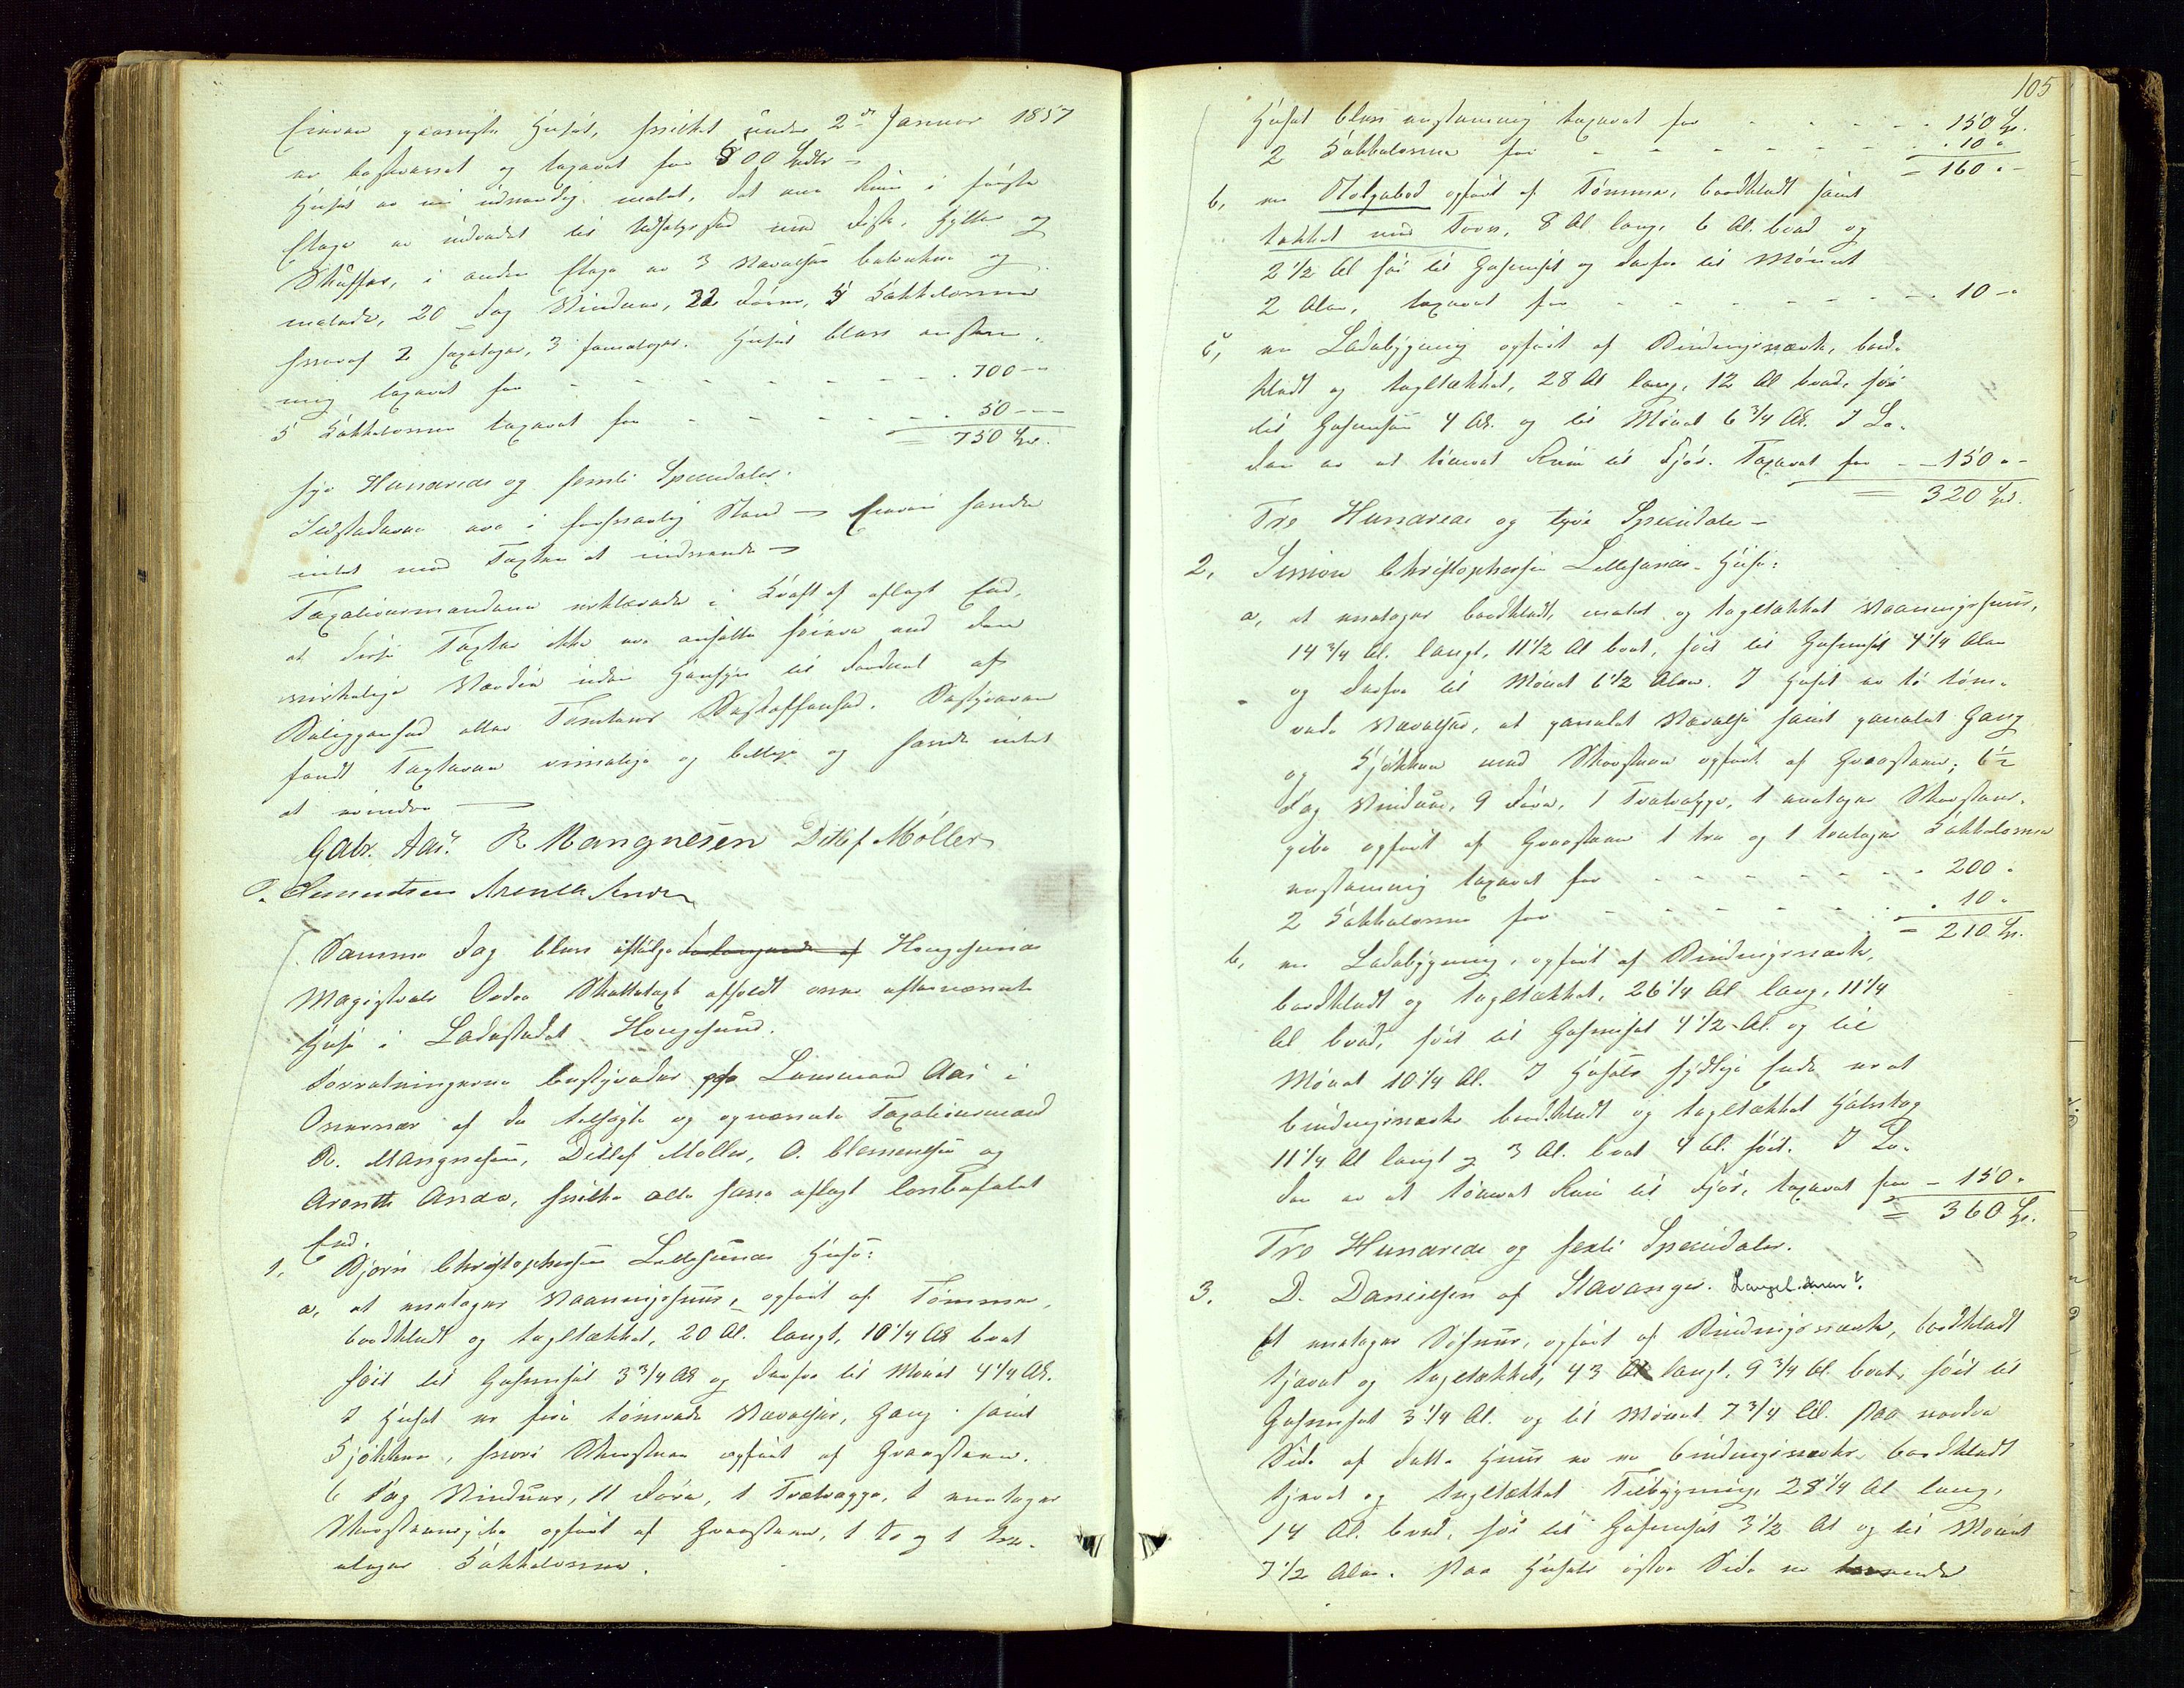 Eieren paaviste Huset, hvilket under 2den Januar 1857
er beskrevet og taxeret for 500 Spdlr –
Huset er nu udvendig malet, det ene Rum i første
Etage er indredet til Udsalgssted med Disk, Hylder og
Skuffer, i anden Etage er 3 Værelser betrukne og
malede, 20 Fag Vinduer, 22 Døre, 5 Kakkelovne
hvoraf 2 toetages, 3 fireetages. Huset blev omtax-
ering taxeret for - - - - - 700 –
5 Kakkelovne taxeret for - - - - 50 –
= 750 Spd.
Syv Hundrede og femti Speciedaler.
Ildstederne ere i forsvarlig Stand – Eieren havde
intet mod Taxten at indvende –
Taxationsmændene erklærede i Kraft af aflagt Eed,
at disse Taxter ikke ere ansatte høiere end den
virkelige Værdie uden Hensyn til Stedets
Beliggenhed eller Tomtens Beskaffenhed. Bestyreren
fandt Taxterne rimelige og billige og havde intet
at erindre
Gabr. Aas. R Mangnesen Ditlef Møller
O. Clemendsen Arenth Andr.
Samme Dag blev ifølge Haugesunds
Magistrats Ordre Skattetaxt afholdt over efternævnte
Huse i Ladestedet Haugesund.
Forretningerne bestyredes af Lensmand Aas i
Overvær af de tilsagte og opnævnte Taxationsmænd
R. Mangnesen, Ditlef Møller, O. Clemensen og
Arenth Andr, hvilke alle have aflagt lovbefalet
Eed.
1, Bjørn Christophersen Lillesunds Huse:
a, et eenetages Vaaningshuus, opført af Tømmer,
bordklædt og tagltækket, 20 Al. langt, 10 1/4 Al. bredt
høit til Gesimset 3 3/4 Al. og derfra til Mønet 4 1/4 Al.
I Huset er fire tømrede Værelser, Gang samt
Kjøkken, hvori Skorsteen opført af Graasteen.
6 Fag Vinduer, 11 Døre, 1 Trætrappe, 1 eenetages
Skorsteenspibe opført af Graasteen, 1 to og 1 tre-
etages Kakkelovne.
105
Huset blev omtaxering taxeret for - - - - - 150 Sp.
2 Kakkelovne for - - - - - - 10 "
– 160 " –
b, en Stolpebod opført af Tømmer, bordklædt samt
tækket med Torv, 8 Al. lang, 6 Al. bred og
2 1/2 Al høi til Gesimset og derfra til Mønet
2 Alen, taxeret for - - - - - - 10 –
c, en Ladebygning opført af Bindingsværk, bord-
klædt og tagltækket, 28 Al lang, 12 Al bred, høi
til Gesimsen 4 Al. og til Mønet 6 3/4 Al. I La-
den er et tømret Rum til Fjøs. Taxeret for – 150 " –
= 320 Spd.
Tre Hundrede og tyve Speciedaler –
2, Simon Christophersen Lillesunds Huse:
a, et eenetages bordklædt, malet og tagltækket Vaaningshuus,
14 3/4 Al. langt, 11 1/2 Al bredt, høit til Gesimset 4 1/4 Alen
og derfra til Mønet 6 1/2 Alen. I Huset er to tøm-
rede Værelser, et panelet Værelse samt panelet Gang
og Kjøkken med Skorsteen opført af Graasteen; 6 1/2
Fag Vinduer, 9 Døre, 1 Trætrappe, 1 eenetages Skorsteens-
pibe opført af Graasteen 1 tre og 1 toetages Kakkelovne
omtaxering taxeret for - - - - - 200 "
2 Kakkelovne for - - - - - 10 "
= 210 Sp.
b, en Ladebygning, opført af Bindingsværk,
bordklædt og tagltækket, 26 1/4 Al lang, 11 1/4
Al bred, høit til Gesimset 4 1/2 Al. og til
Mønet 10 1/4 Al. I Husets sydlige Ende er et
bindingsværks bordklædt og tagltækket Halvtag
11 1/4 Al langt og 3 Al. bredt 4 Al. høit. I La-
den er et tømret Rum til Fjøs, taxeret for – 150 "
= 360 Sp.
Tre Hundrede og sexti Speciedaler.
3. D. Danielsen af Stavanger.
Et eenetages Søhuus, opført af Bindingsværk, bordklædt
tjæret og tagltækket, 43 Al langt, 9 3/4 Al. bredt, høit til
Gesimset 3 1/4 Al. og til Mønet 7 3/4 Al. Paa nordre
Side af dette Huus er en bindingsværks bordklædt
tjæret og tagltækket Tilbygning, 28 1/4 Al lang,
14 Al. bred, høi til Gesimset 3 1/2 Al og til Mønet
7 1/2 Alen. Paa Husets østre Side er